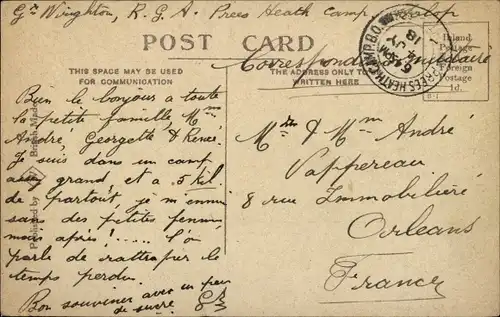 Gr Wrighton, R. G. A. Prees Heath Camp, Salop
POST CARD
Correspondance Militaire
THIS SPACE MAY BE USED
FOR COMMUNICATION
THE ADDRESS ONLY TO
WRITTEN HERE
Inland
Postage
Foreign
Postage
1d.
PREES HEATH CAMP B.O.
6 PM
JY
18
Bien le bonjour a toute
la petite famille, Mm
André, Georgette & René.
Je suis dans un camp
assez grand et a 5 kil.
de partout, je m'ennui
sans des petites femmes,
mais après! ..... l'on
parle de rattraper le
temps perdu.
Bon souvenir avec un peu
de sucre
Published by
British Made
Mr & Mm André
Vappereau
8 rue Immobilière
Orleans
France